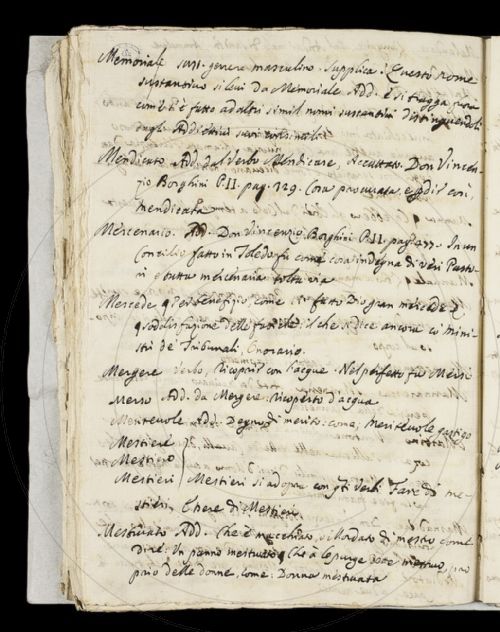 Memoriale sust. genere masculino. Supplica. Questo nome
sustantivo si levi da Memoriale Add. e si tragga fuora
come s'è fatto ad altri simil nomi sustantivi distinguendoli
dagli Addiettivi
Mendicato Add. dal Verbo Mendicare, Accattato. Don Vincen-
zio Borghini P. II. pag. 129. Cosa procurata, e p dir così,
mendicata
Mercenario. Add. Don Vincenzio Borghini P. II. pag. 477. In un
Concilio fatto in Toledo fù come cosa indegna di veri Pasto-
ri e tutta mercenaria tolta via
Mercede p benefizio come fatto Dio gran mercede e
p sodisfazione delle fatiche il che si dice ancora co' Mini-
stri de' Tribunali, Onorario.
Mergere Verbo, Ricoprir con l'acque. Nel perfetto fu Mersi
Merso Add. da Mergere. Ricoperto d'acqua
Meritevole Add. Degno di merito: come, Meritevole gastigo
Mestiere
Mestiero
Mestieri Mestieri si adopra con gli Verbi Fare di me-
stieri, Essere di Mestieri
Mestruato Add. Che è macchiato, o lordato di mestro come
dire: Un panno mestruato, Che à le purge
prio delle donne, come: Donna mestruata